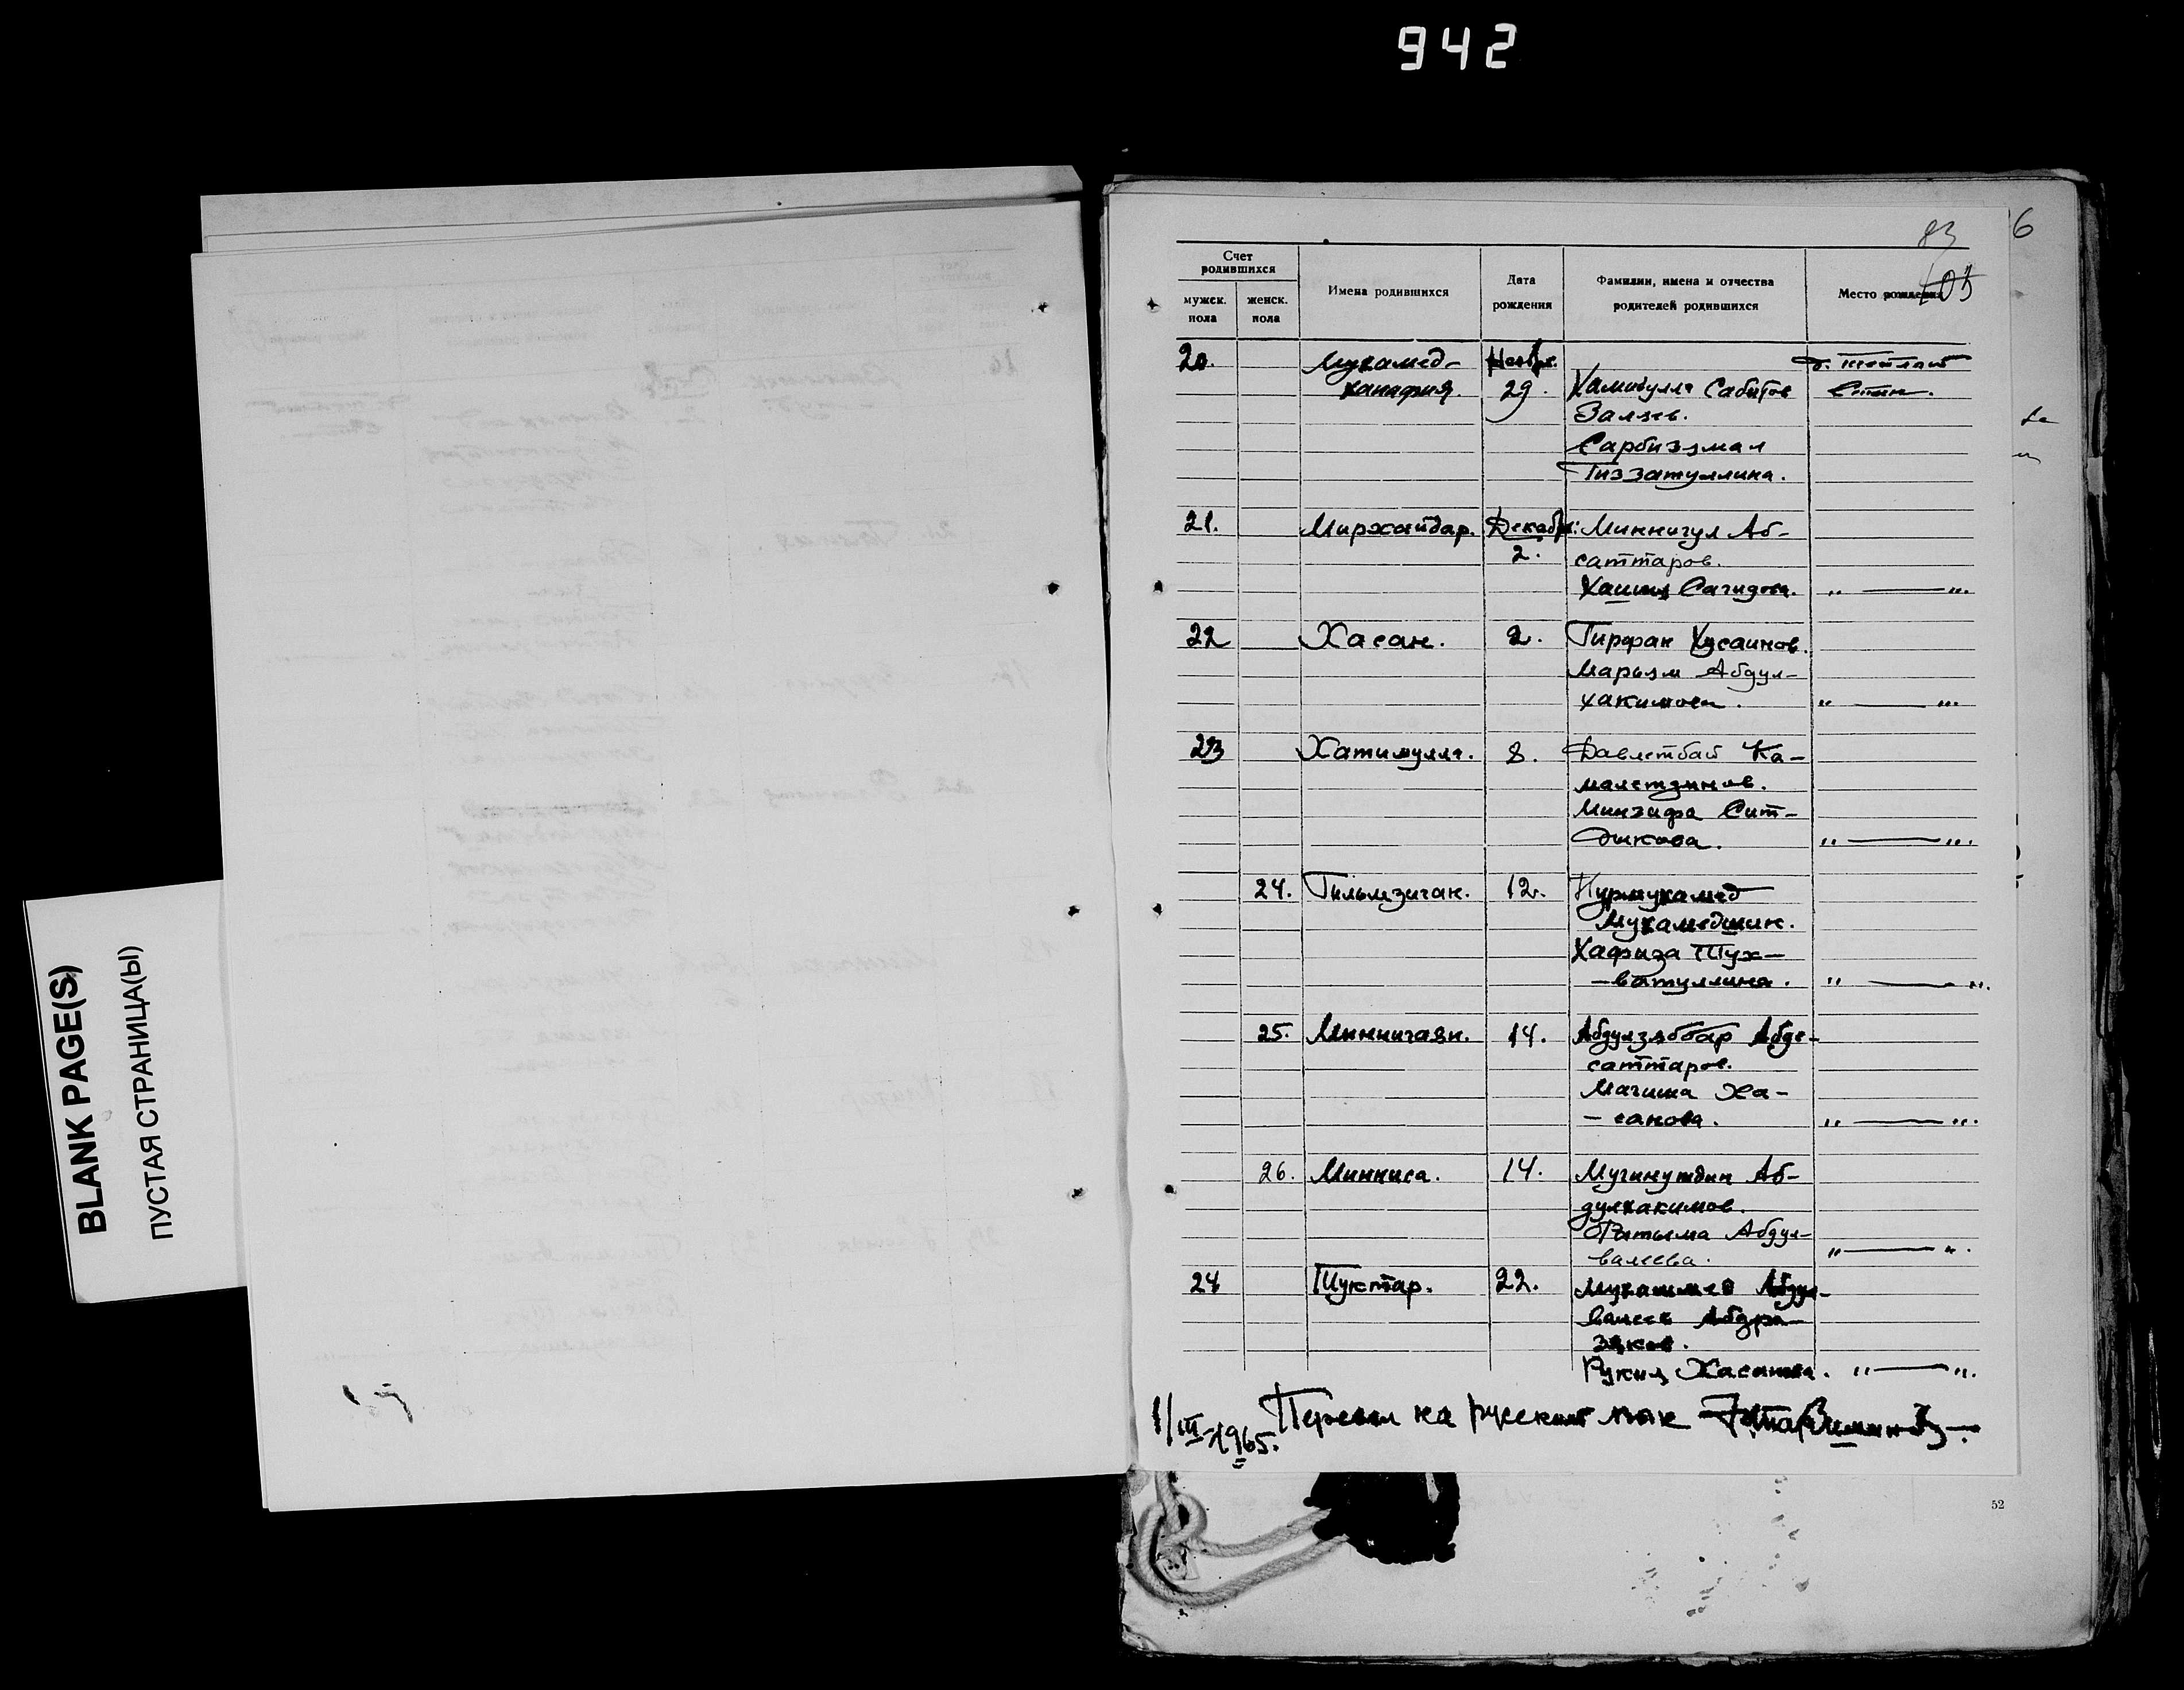 942
BLANK PAGE(S)
ПУСТАЯ СТРАНИЦА(Ы)
6
83
105
Счет родившихся
мужск. пола
женск. пола
Имена родившихся
Дата рождения
Фамилии, имена и отчества родителей родившихся
Место рождения
20. Мухамед- Ноябр.
ханафия. 29. Хамидулла Сабитов
Валеев.
Сарбиэямал
Гиззатуллина.
21. Мирхайдар. Декабрь: Миннигул Аб-
2. саттаров.
Хашия Сагидова. „ — „.
22 Хасан. 2. Гирфан Хусаинов.
Марьям Абдул-
хакимова. „ — „.
23 Хатимулла. 8. Давлетбай Ка-
малетдинов.
Минзифа Сит-
дикова. „ — „.
24. Гильмзиган. 12. Нурмухамед
Мухамедшин.
Хафиза Тух-
-ватуллина. „ — „.
25. Миннигаян. 14. Абдулзяббар Абде-
саттаров.
Магиша Ха-
-санова. „ — „.
26. Минниса. 14. Мугинутдин Аб-
дулхакимов.
Фатыма Абдул-
валеева. „ — „.
24 Шуктар. 22. Мухаммед Абдул-
валеев Абдра-
зяков.
Рукия Хасанова. „ — „.
1/III-1965. Перевел на русский язык
52